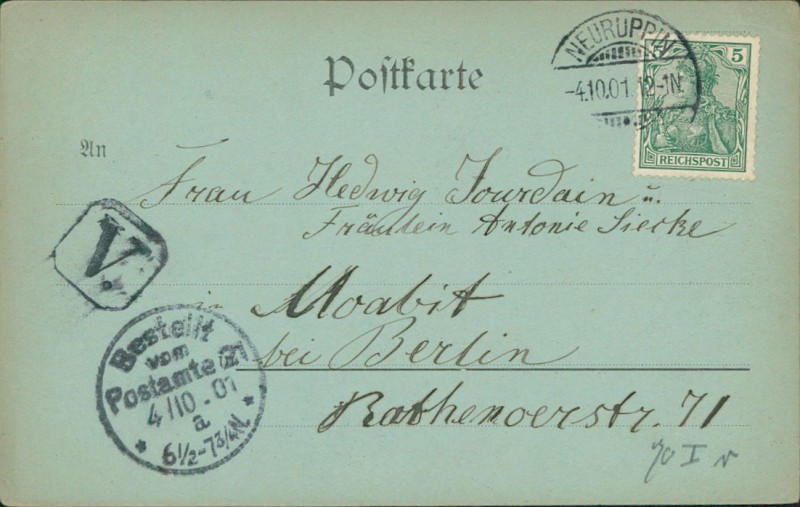 Postkarte
NEURUPPIN
-4.10.01.12-1N.
5
REICHSPOST
An
Frau Hedwig Jourdain u.
Fräulein Antonie Siecke
in Moabit
bei Berlin
Rathenoerstr. 71
V.
Bestellt
vom
Postamte 21
4/10.01
a
* 6½-7¾N. *